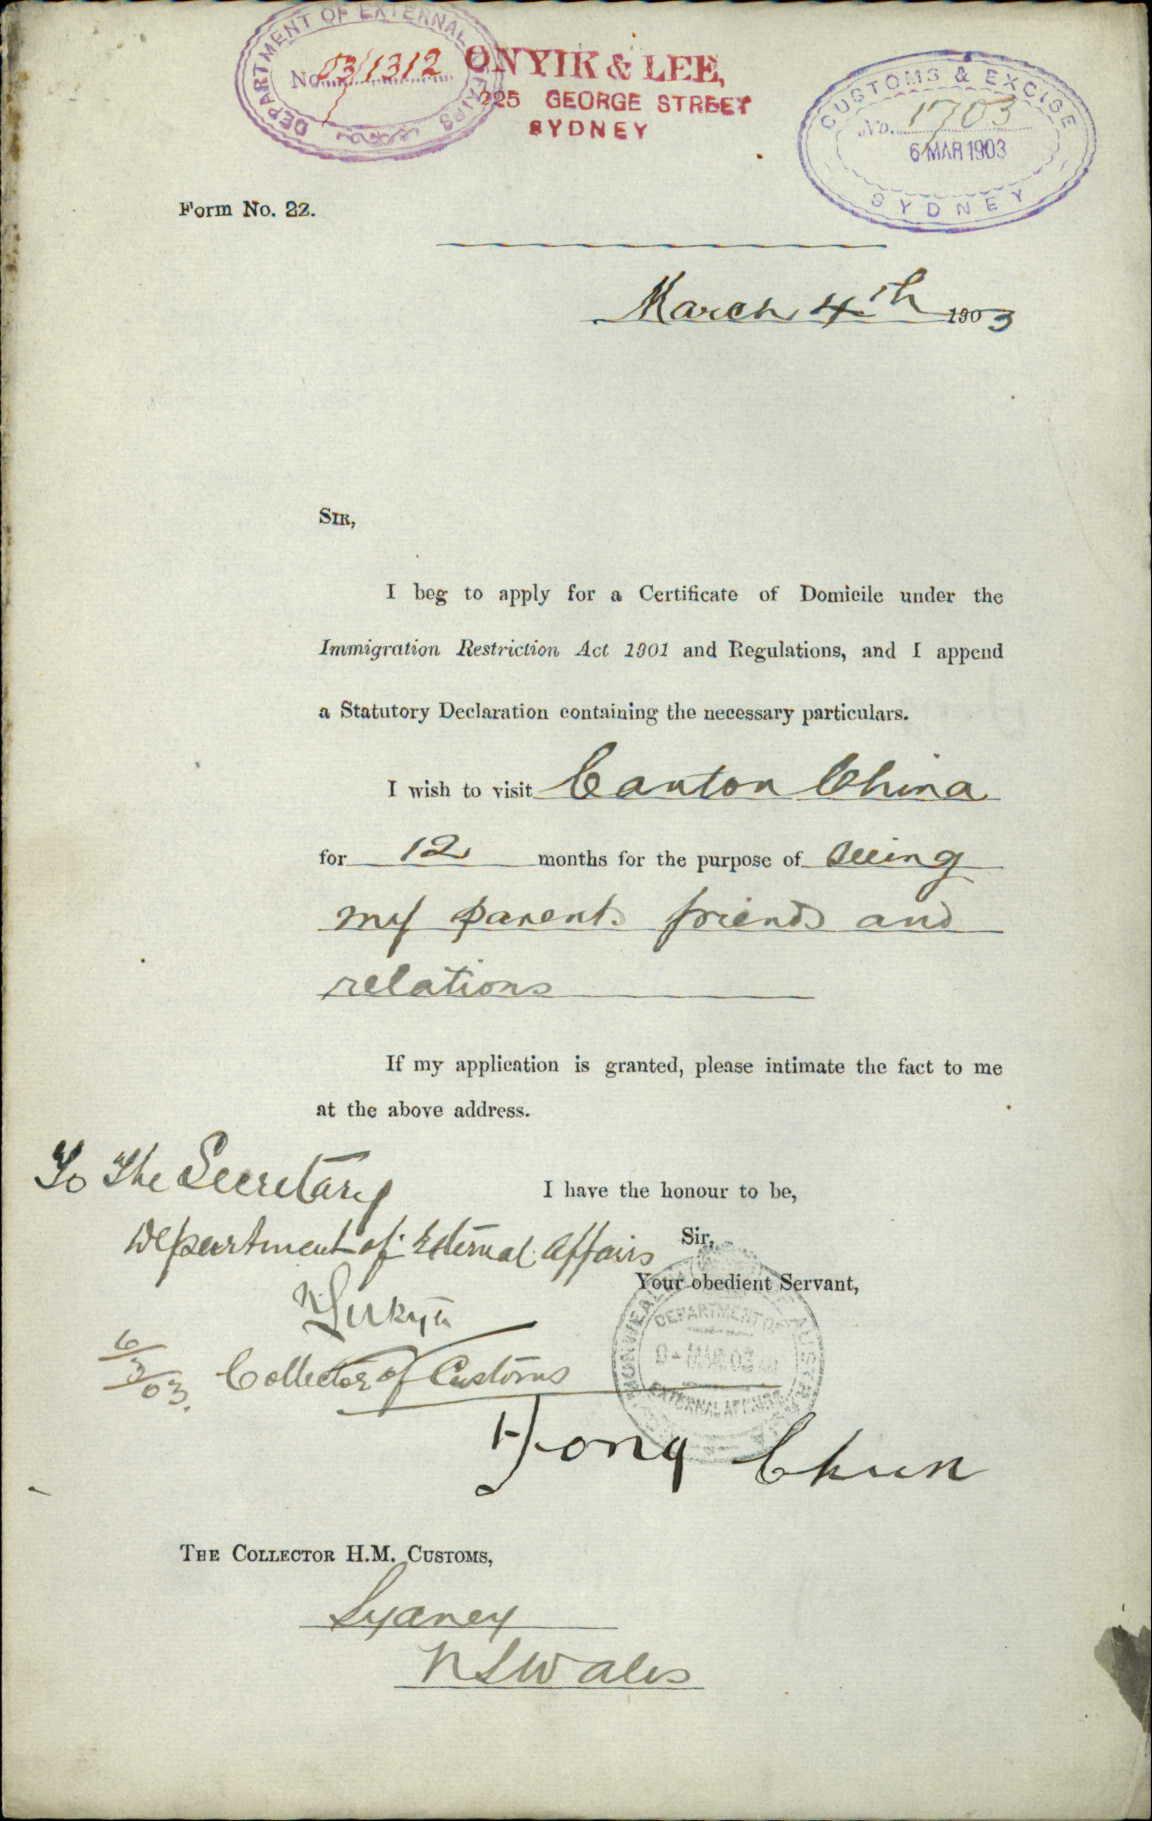 DEPARTMENT OF EXTERNAL AFFAIRS
No. 03/1312
ONYIK & LEE,
225 GEORGE STREET
SYDNEY
CUSTOMS & EXCISE
No. 1703
6 MAR 1903
SYDNEY
Form No. 22.
March 4th 1903
SIR,
I beg to apply for a Certificate of Domicile under the
Immigration Restriction Act 1901 and Regulations, and I append
a Statutory Declaration containing the necessary particulars.
I wish to visit Canton China
for 12 months for the purpose of seeing
my parents friends and
relations
If my application is granted, please intimate the fact to me
at the above address.
To The Secretary
I have the honour to be,
Department of External Affairs
Sir,
Your obedient Servant,
DEPARTMENT OF
MAR 03
EXTERNAL AFFAIRS
6/3/03.
Collector of Customs
Hong Chun
THE COLLECTOR H.M. CUSTOMS,
Sydney
N S Wales